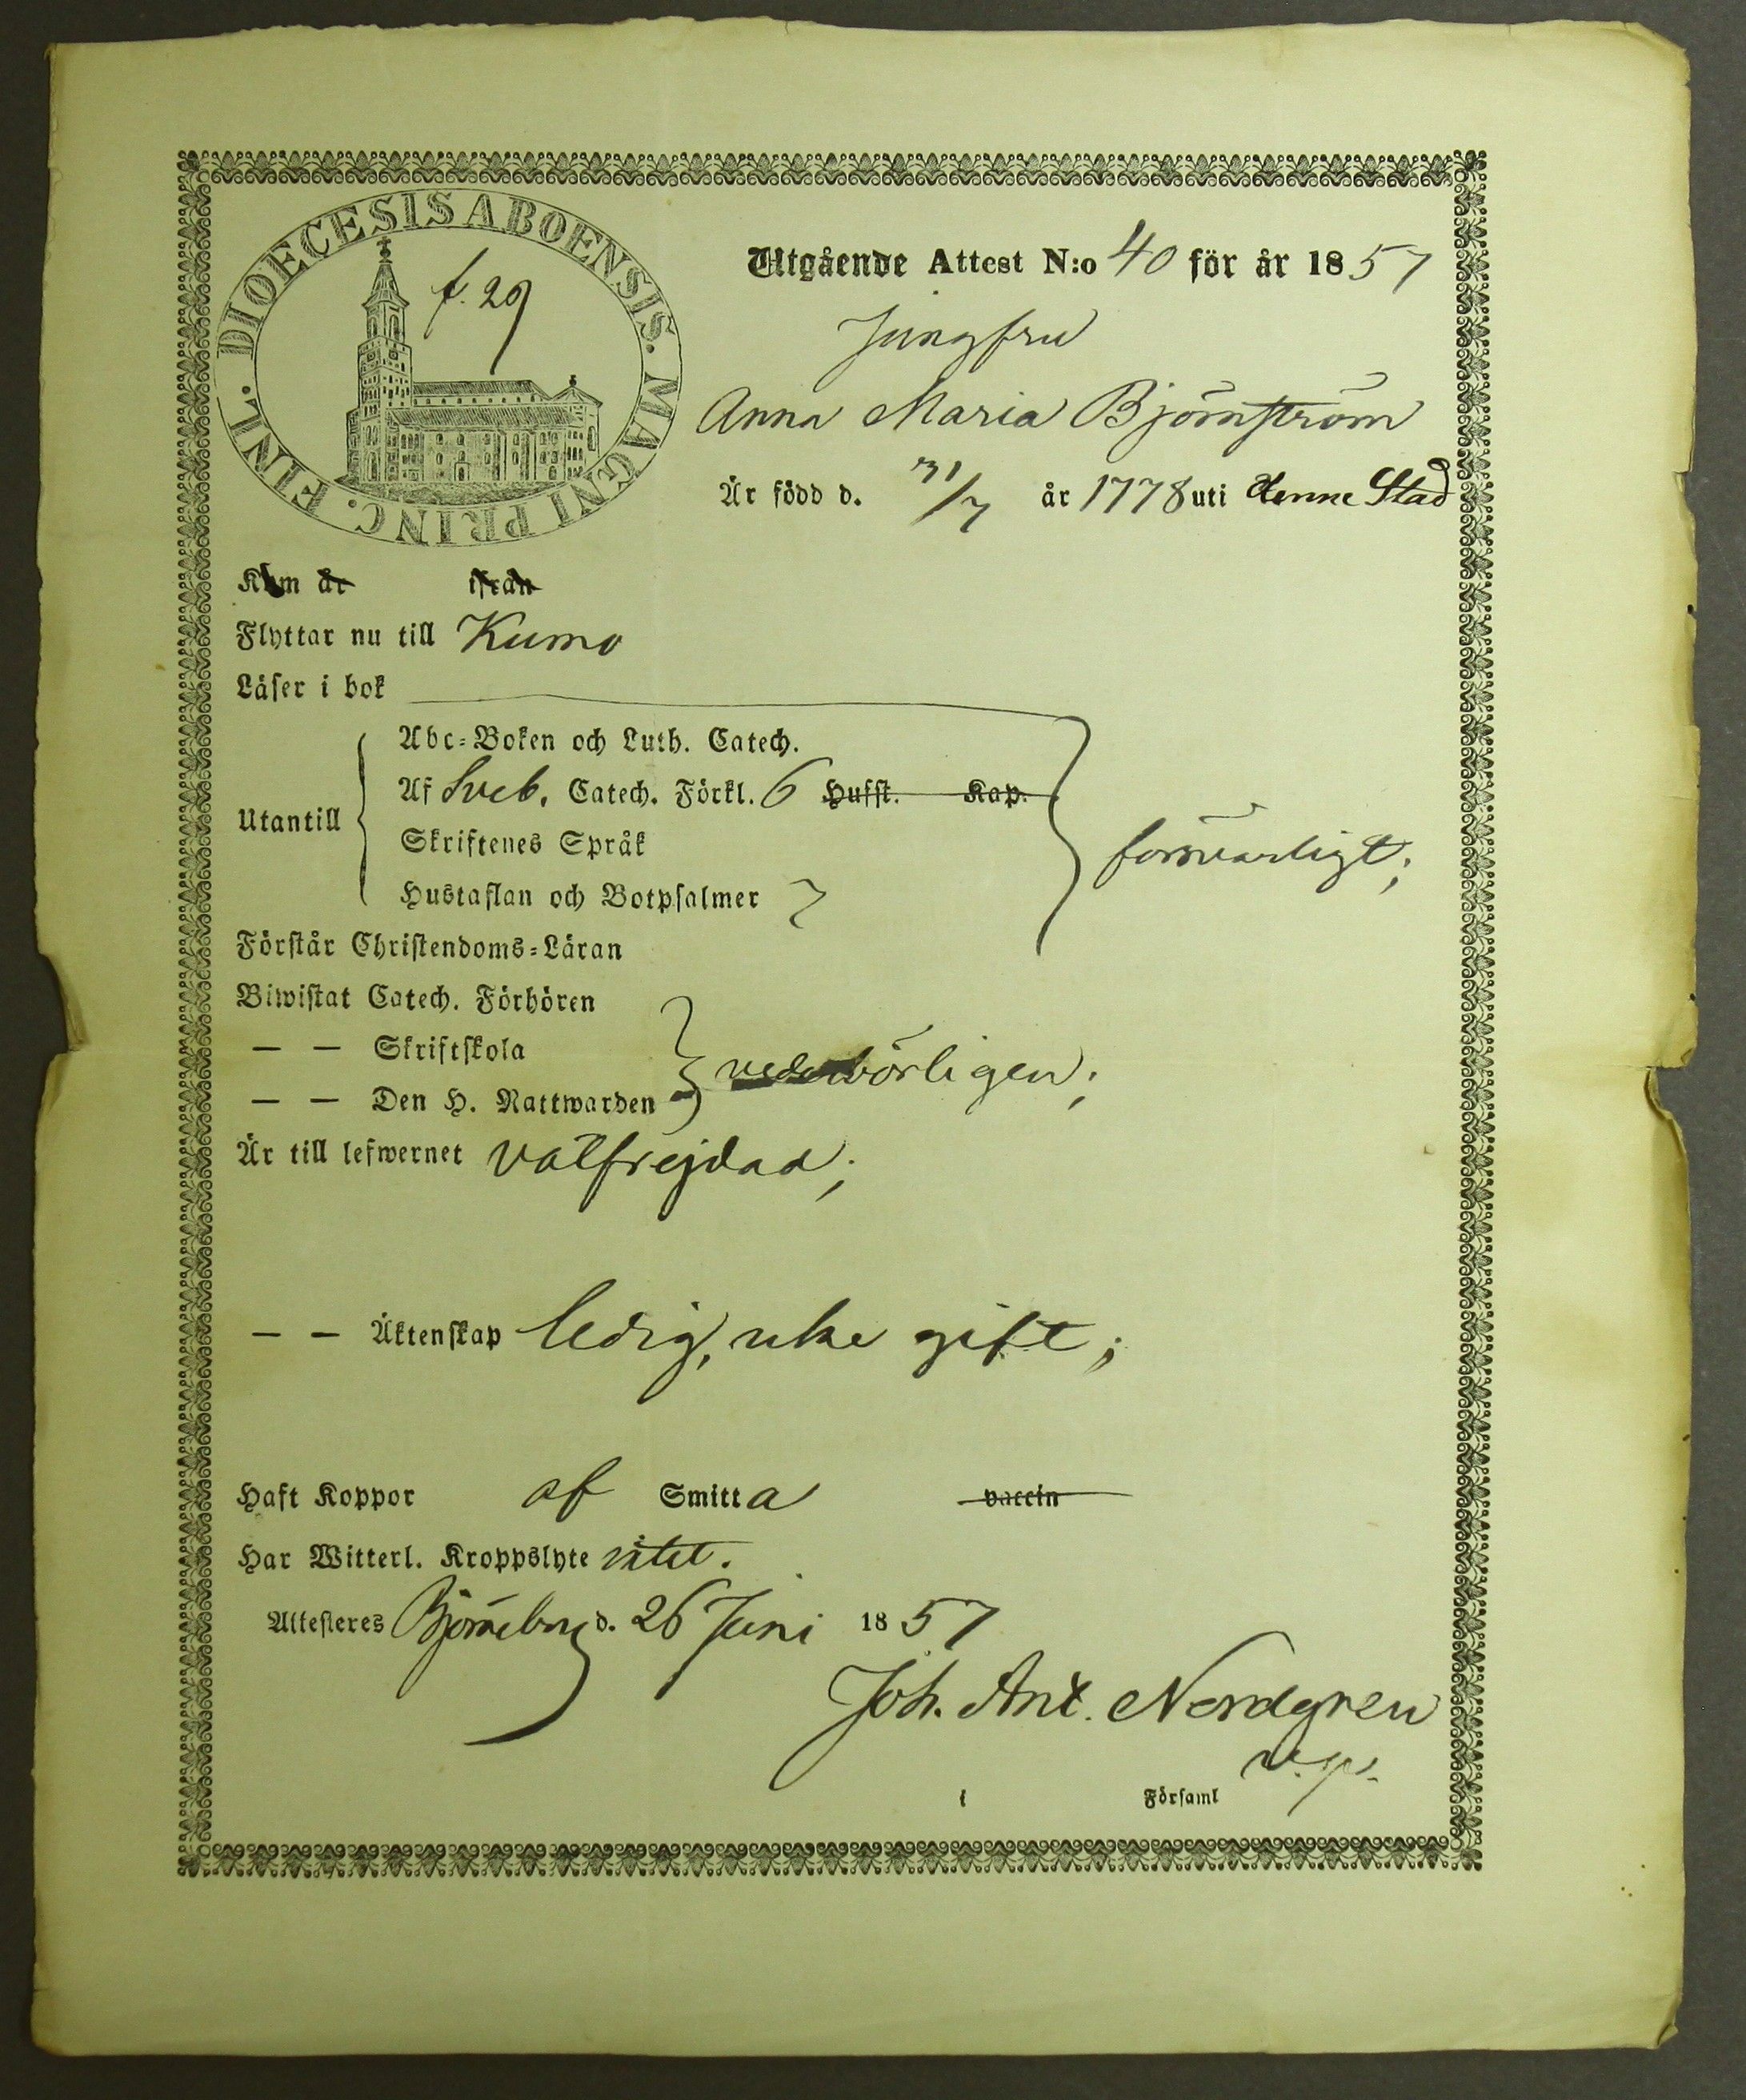 DIOECESIS ABOENSIS. MAGNI PRINC. FINL.
f. 29
Utgående Attest N:o 40 för år 1857
Jungfru
Anna Maria Björnström
Är född d. 31/7 år 1778 uti denne Stad
Kom år ifrån
Flyttar nu till Kumo
Läser i bok
Abc-Boken och Luth. Catech.
Af Sveb. Catech. Förkl. 6 Hufst. Kap.
Utantill
Skriftenes Språk
försvarligt;
Hustaflan och Botpsalmer 7
Förstår Christendoms-Läran
Biwistat Catech. Förhören
— — Skriftskola
vederbörligen;
— — Den H. Nattwarden
Är till lefwernet välfrejdad;
— — Äktenskap ledig, icke gift;
Haft Koppor af Smitta vaccin
Har Witterl. Kroppslyte intet.
Attesteres Björneborg d. 26 Juni 1857
Joh. Ant. Nordgren
v. p.
i Församl